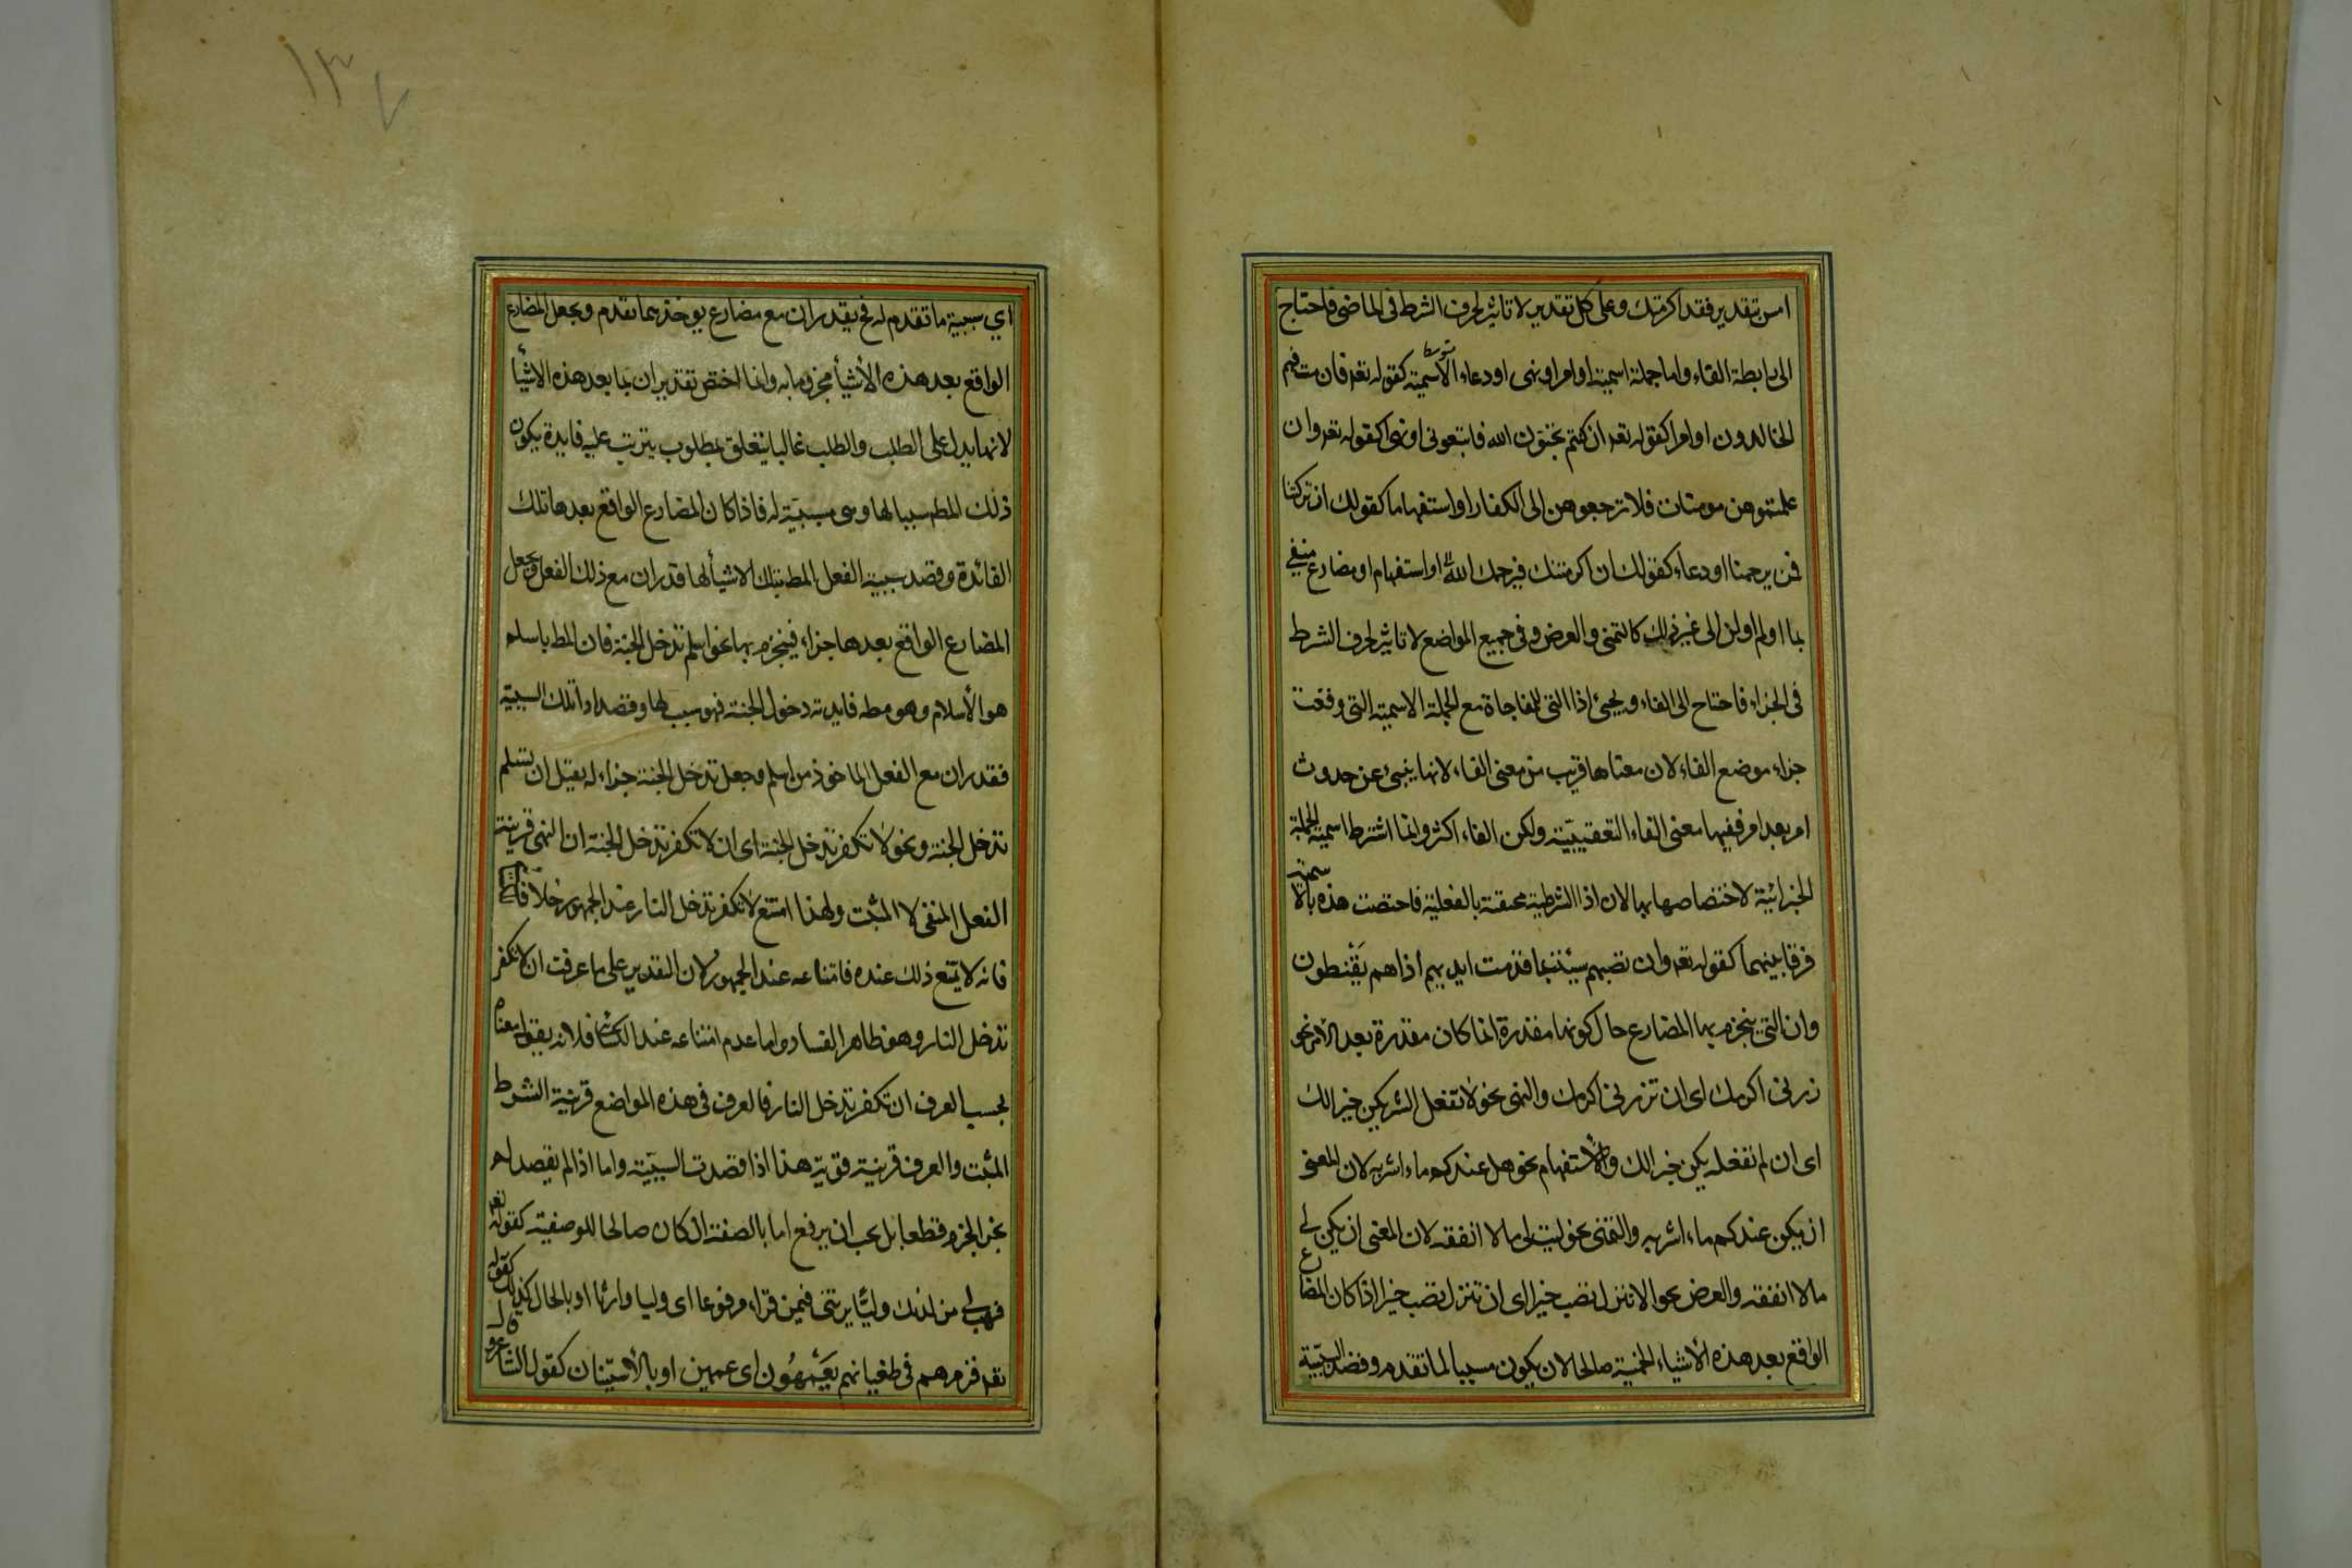 امس بتقدير فقد اكرمتك وعلى كل تقدير لا تاثير لحرف الشرط فى الماضى فاحتاج
الى رابطة الفاء واما جملة اسمية او امر او نهى او دعاء الاسمية كقوله تعه فان مت فهم
الخالدون او امرا كقوله تعه ان كنتم تحبون الله فاتبعونى او نهيا كقوله تعه وان
علمتموهن مومنات فلا ترجعوهن الى الكفار او استفهاما كقولك ان تركتنا
فمن يرحمنا او دعاء كقولك ان اكرمتنك فيرحمك الله او استفهام او مضارع منفي
بما او لم او لن الى غير ذلك كالتمنى والعرض وفى جميع المواضع لا تاثير لحرف الشرط
فى الجزاء فاحتاج الى الفاء ويجئ اذا التى للمفاجاة مع الجملة الاسمية التى وقعت
جزاء موضع الفاء لان معناها قريب من معنى الفاء لانها ينبئ عن حدوث
امر بعد امر ففيها معنى الفاء التعقيبية ولكن الفاء اكثر وانما اشترط اسمية الجملة
الجزائية لاختصاصها بها لان اذا الشرطية مختصة بالفعلية فاختصت هذه بالاسمية
فرقا بينهما كقوله تعه وان تصبهم سيئة بما قدمت ايديهم اذا هم يقنطون
وان التى ينجزم بها المضارع حال كونها مقدرة انما كان مقدرة بعد الامر نحو
زرنى اكرمك اى ان تزرنى اكرمك والنهى نحو لا تفعل الشر يكن خيرا لك
اى ان لم تفعله يكن خيرا لك والاستفهام نحو هل عندكم ماء اشربه لان المعنى
ان يكن عندكم ماء اشربه والتمنى نحو ليت لى مالا انفقه لان المعنى ان يكن لي
مالا انفقه والعرض نحو الا تنزل تصب خيرا اى ان تنزل تصب خيرا اذا كان المضارع
الواقع بعد هذه الأشياء الخمسة صالحا لان يكون مسببا لما تقدم وقصد السببيّة
اي سببية ما تقدم له فح يقدر ان مع مضارع يوخذ مما تقدم ويجعل المضارع
الواقع بعد هذه الأشيأ مجزوما به وانما اختص تقدير ان بما بعد هذه الاشيأ
لانها يدل على الطلب والطلب غالبا يتعلق بمطلوب يترتب عليه فايدة يكون
ذلك المط سببا لها وهى مسببة له فاذا كان المضارع الواقع بعدها تلك
الفائدة وقصد سببية الفعل المط بتلك الاشيأ لها قدر ان مع ذلك الفعل ويجعل
المضارع الواقع بعدها جزاء فينجزم بها نحو اسلم تدخل الجنة فان المط باسلم
هو الأسلام وهو مط فايدته دخول الجنة فهو سبب لها وقصد اداء تلك السببية
فقدر ان مع الفعل الماخوذ من اسلم وجعل تدخل الجنة جزاء له بقيل ان تسلم
تدخل الجنة ونحو لا تكفر تدخل الجنة اى ان لا تكفر تدخل الجنة ان النهى قرينة
الفعل المنفى لا المثبت ولهذا امتنع لا تكفر تدخل النار عند الجمهور خلافا
فانه لا يمتنع ذلك عنده فامتناعه عند الجمهور لان التقدير على ما عرفت ان لا تكفر
تدخل النار وهو ظاهر الفساد واما عدم امتناعه عند الكسائى فلانه يقول معناه
بحسب العرف ان تكفر تدخل النار فالعرف فى هذه المواضع قرنية الشرط
المثبت والعرف قرينة قوية هذا اذا قصدت السببيّة واما اذا لم يقصد لم
يجز الجزم قطعا بل يجب ان يرفع اما بالصفة ان كان صالحا للوصفية كقوله تعه
فهب لي من لدنك وليًّا يرثنى فيمن قراء مرفوعا اى وليا وارثا او بالحال كذلك كقوله
تعه فذرهم فى طغيانهم يَعْمَهُون اى عمهين او بالأستينان كقول الشاعر